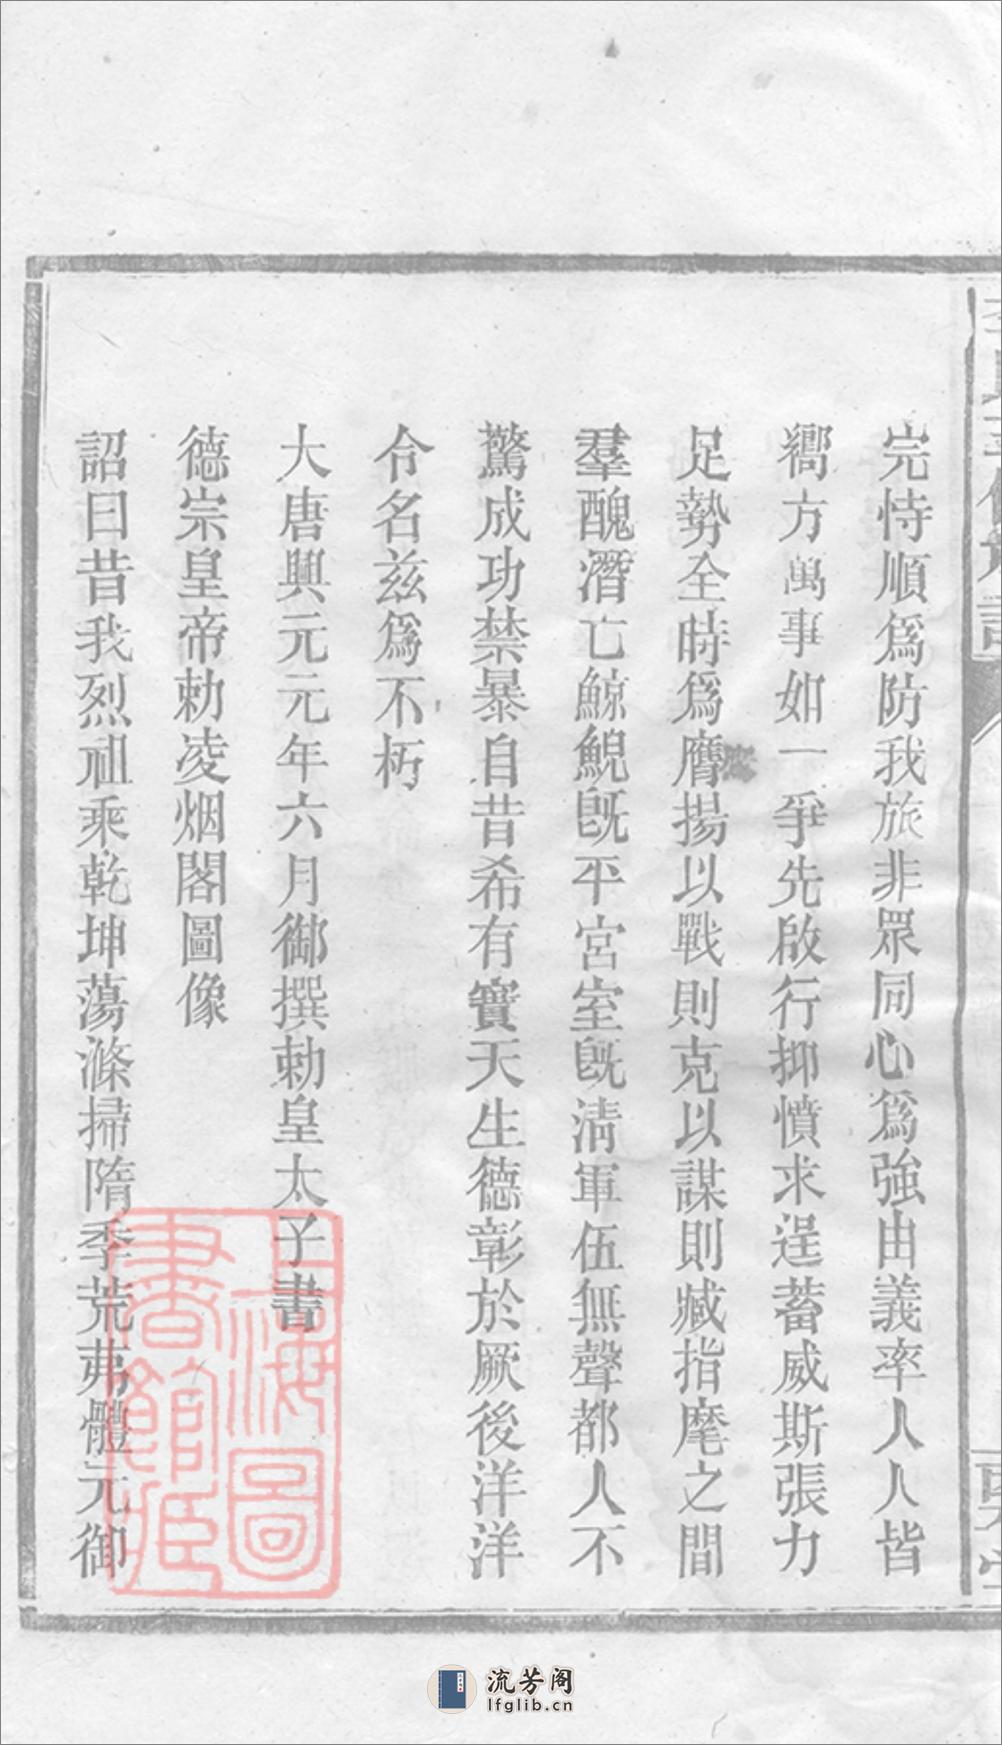 完恃順爲防我旅非眾同心爲強由義率人人皆
嚮方萬事如一爭先啟行抑憤求逞蓄威斯張力
足勢全時爲膺揚以戰則克以謀則臧指麾之間
羣醜潛亡鯨鯢旣平宮室旣淸軍伍無聲都人不
驚成功禁暴自昔希有實天生德彰於厥後洋洋
令名茲爲不朽
大唐興元元年六月御撰勅皇太子書
德宗皇帝勅凌烟閣圖像
詔曰昔我烈祖乘乾坤蕩滌掃隋季荒茀體元御
上海圖書館藏
流芳阁
lfglib.cn